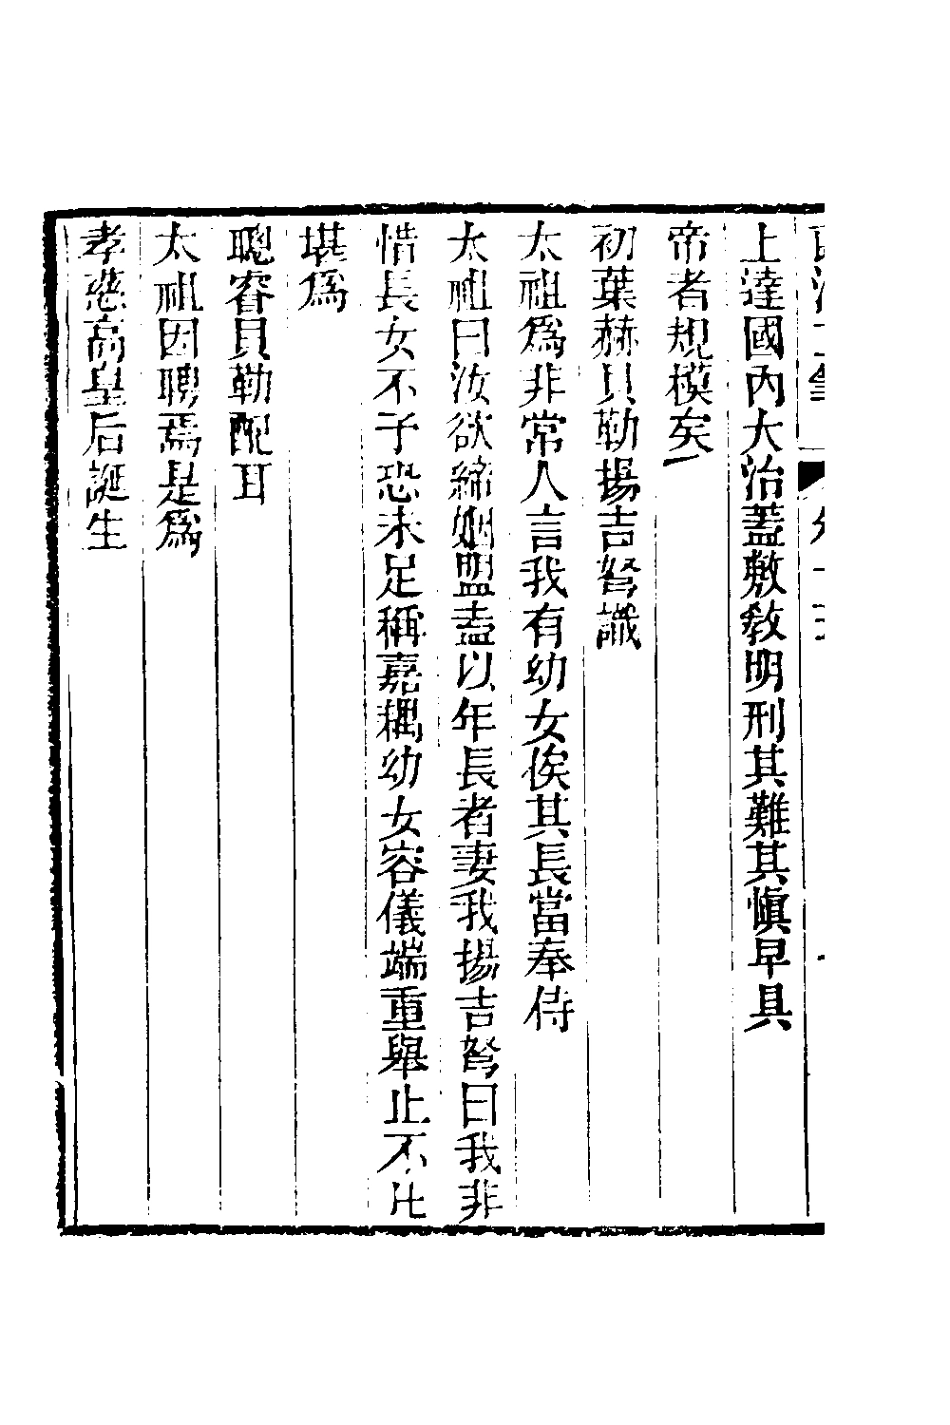 上達國內大治蓋敷敎明刑其難其愼早具
帝者規模矣
初葉赫貝勒揚吉努識
太祖爲非常人言我有幼女俟其長當奉侍
太祖曰汝欲締姻盟盍以年長者妻我揚吉努曰我非
惜長女不予恐未足稱嘉耦幼女容儀端重舉止不凡
堪爲
聰睿貝勒配耳
太祖因聘焉是爲
孝慈高皇后誕生